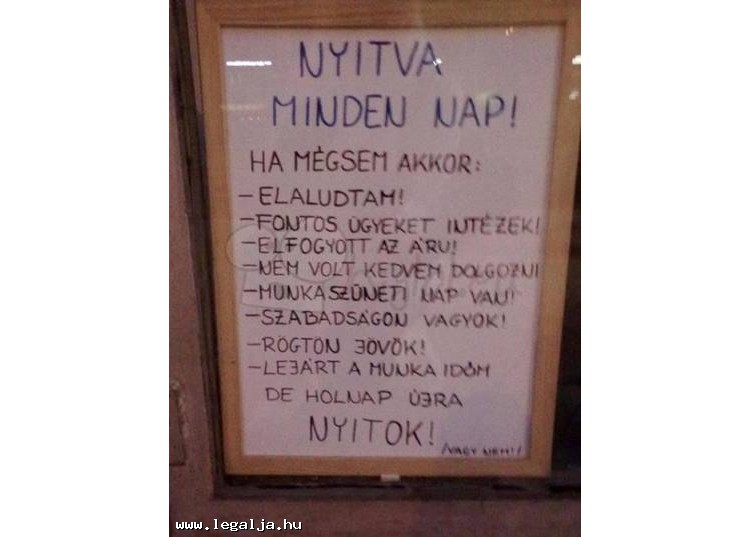 NYITVA
MINDEN NAP!
HA MÉGSEM AKKOR:
- ELALUDTAM!
- FONTOS ÜGYEKET INTÉZEK!
- ELFOGYOTT AZ ÁRU!
- NEM VOLT KEDVEM DOLGOZNI
- MUNKASZÜNETI NAP VAN!
- SZABADSÁGON VAGYOK!
- RÖGTÖN JÖVÖK!
- LEJÁRT A MUNKA IDŐM
DE HOLNAP ÚJRA
NYITOK!
/VAGY NEM!/
www.legalja.hu